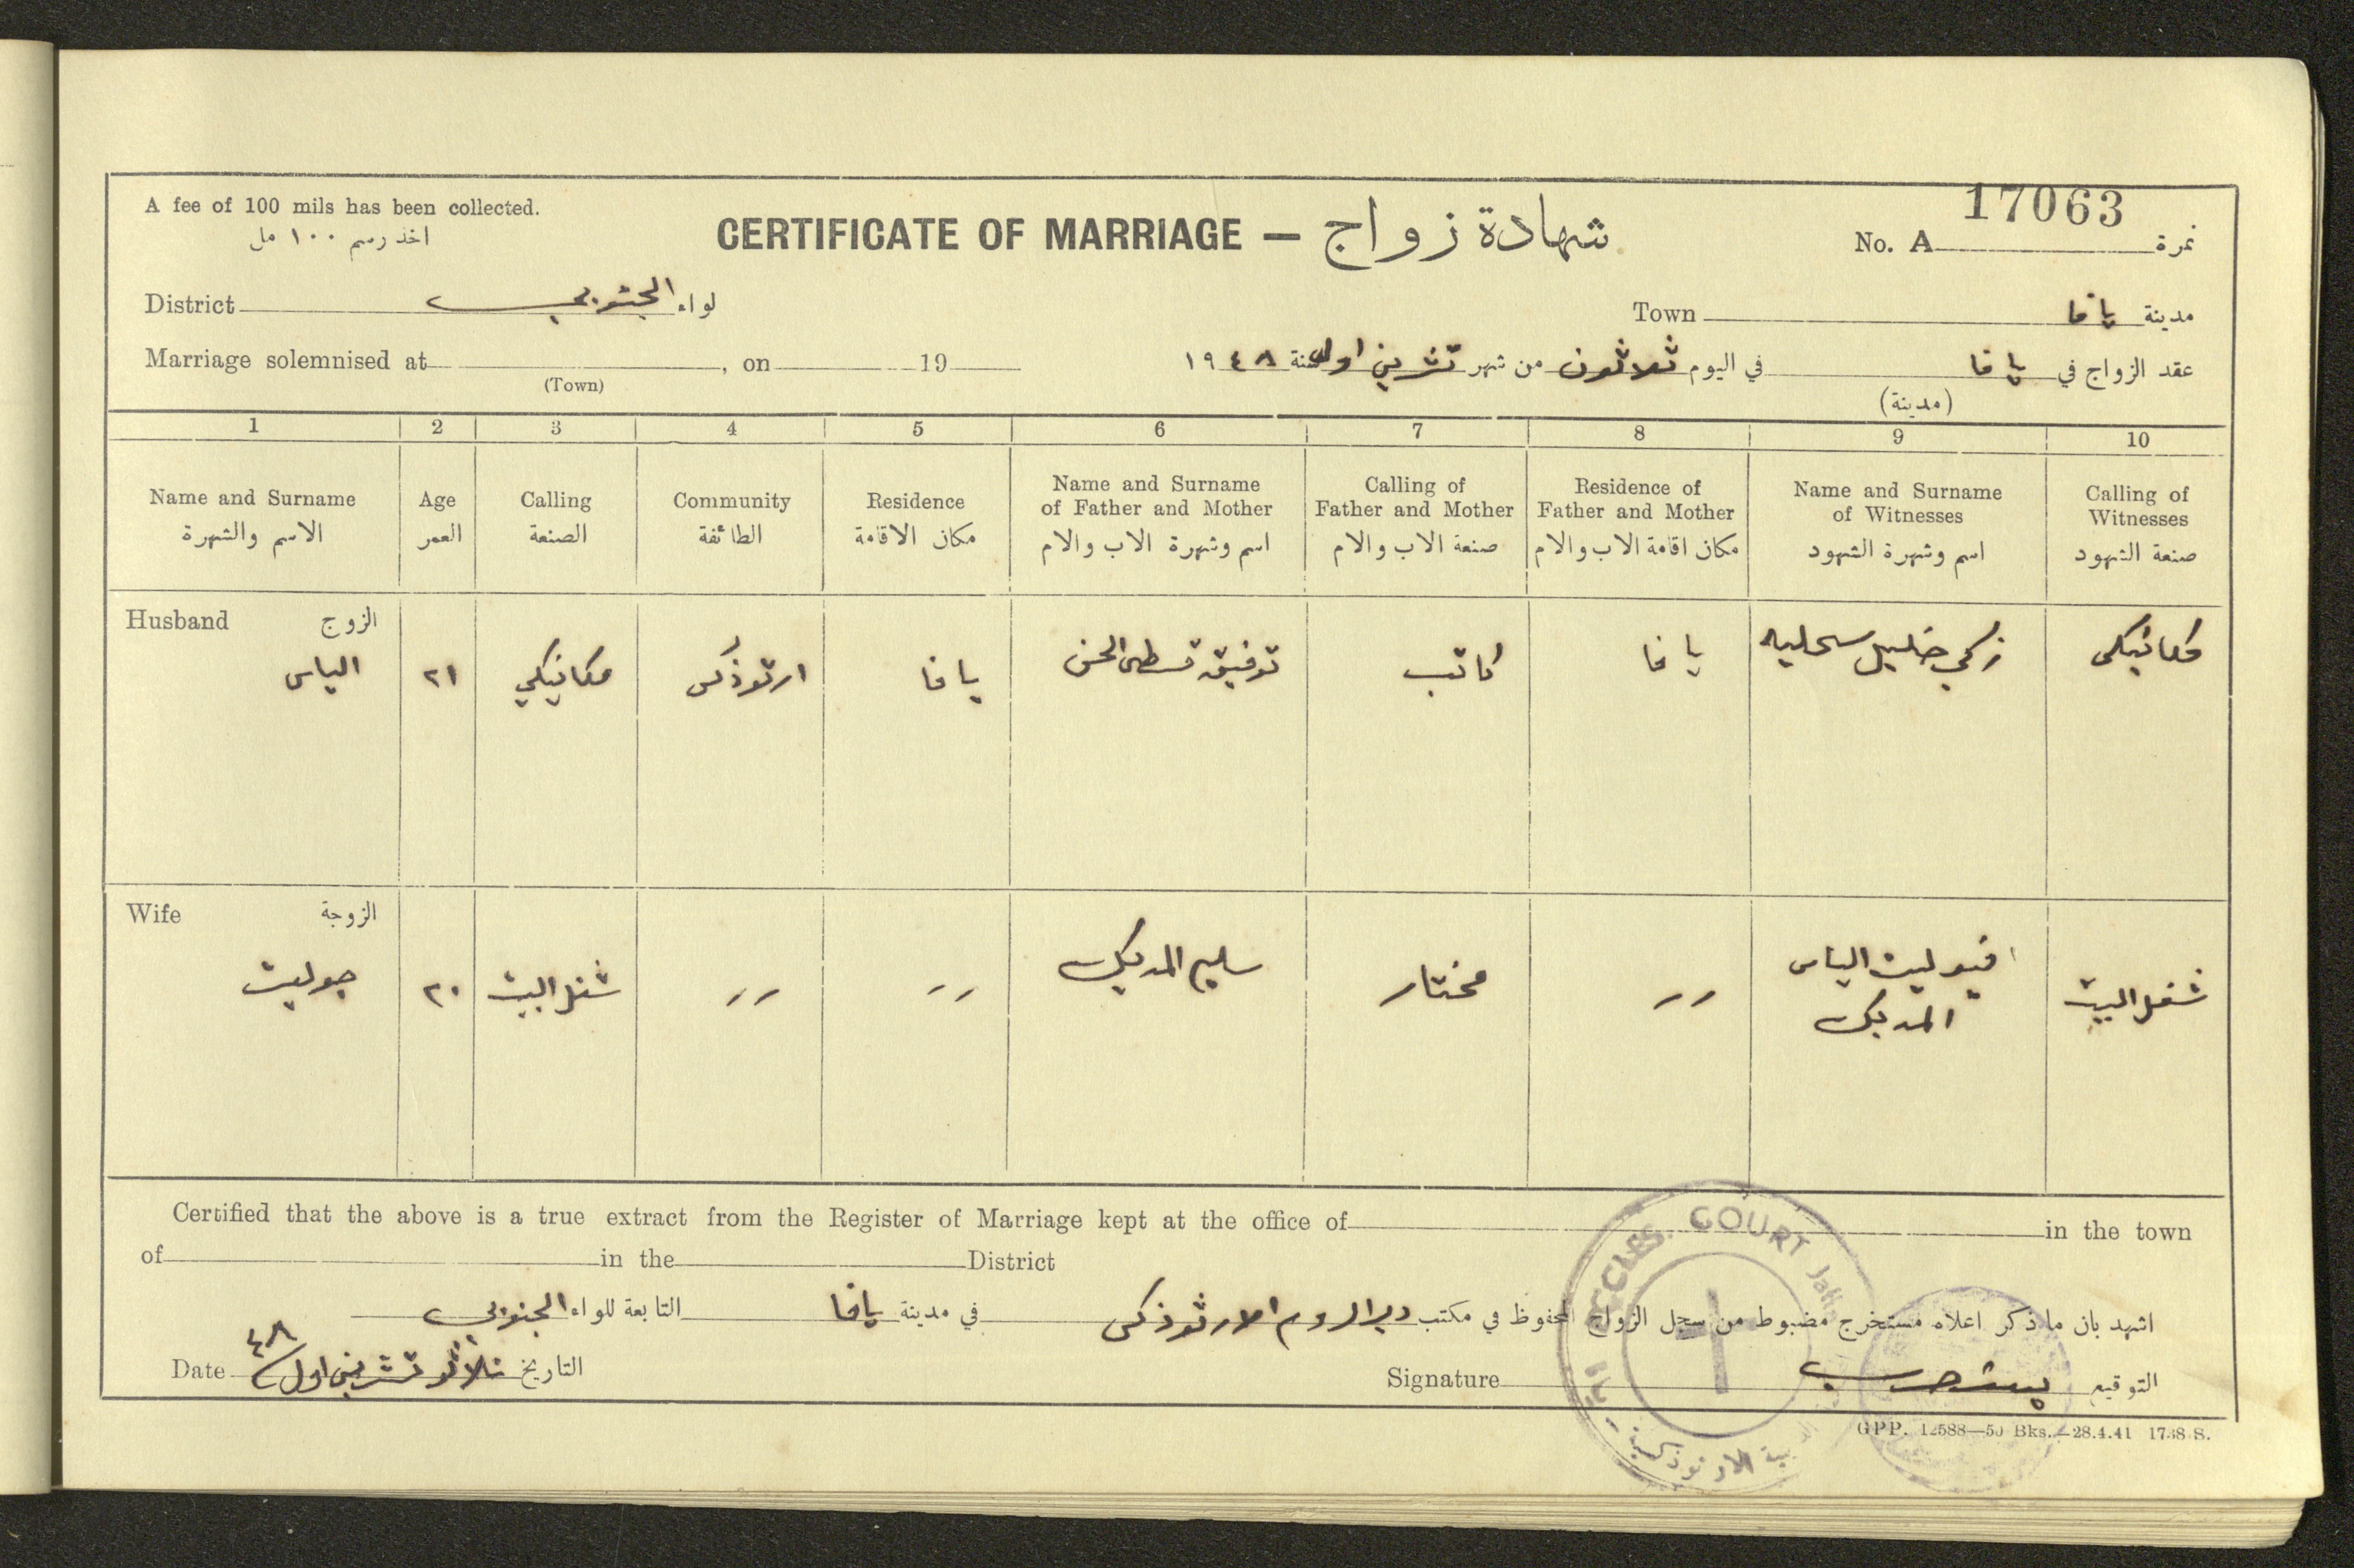 A fee of 100 mils has been collected.
اخذ رسم ١٠٠ مل
CERTIFICATE OF MARRIAGE — شهادة زواج
17063
No. A نمرة
District الجنوبي لواء
Town يافا مدينة
Marriage solemnised at , on 19
(Town)
عقد الزواج في يافا في اليوم ثلاثون من شهر تشرين اول سنة ١٩٤٨
(مدينة)
1 2 3 4 5 6 7 8 9 10
Name and Surname
الاسم والشهرة
Age
العمر
Calling
الصنعة
Community
الطائفة
Residence
مكان الاقامة
Name and Surname
of Father and Mother
اسم وشهرة الاب والام
Calling of
Father and Mother
صنعة الاب والام
Residence of
Father and Mother
مكان اقامة الاب والام
Name and Surname
of Witnesses
اسم وشهرة الشهود
Calling of
Witnesses
صنعة الشهود
Husband الزوج
الياس
٢١
مكانيكي
ارثوذكس
يافا
توفيق قسطى
كاتب
يافا
زكي خليل
مكانيكي
Wife الزوجة
جوليت
٢٠
شغل البيت
〃
〃
سليم المدبك
مختار
〃
افيوليت الياس
المدبك
شغل البيت
Certified that the above is a true extract from the Register of Marriage kept at the office of in the town
of in the District
اشهد بان ما ذكر اعلاه مستخرج مضبوط من سجل الزواج المحفوظ في مكتب دير الروم الارثوذكس في مدينة يافا التابعة للواء الجنوبي
Date ثلاثون تشرين اول ٤٨ التاريخ
Signature التوقيع
ECCLES. COURT Jaffa
الارثوذكسية
GPP. 12588—50 Bks.—28.4.41 1738 S.